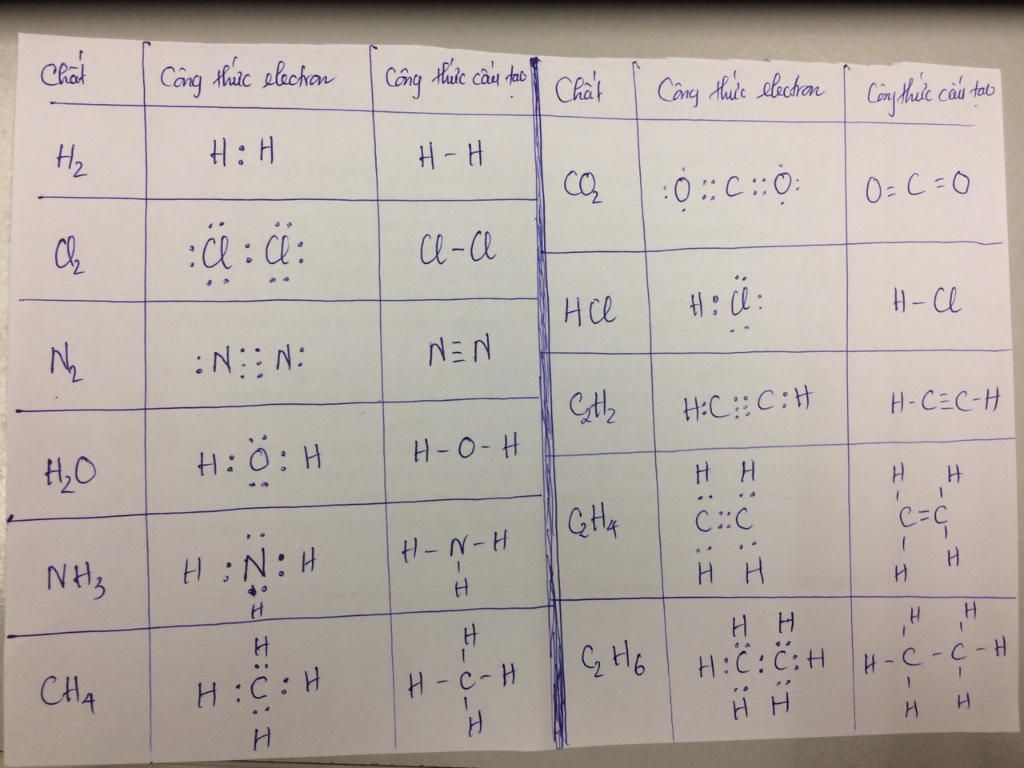 Chất Công thức electron Công thức cấu tạo
H₂ H : H H – H
Cl₂ :Cl : Cl: Cl – Cl
N₂ :N ⋮⋮ N: N ≡ N
H₂O H : O : H H – O – H
NH₃ H : N : H H – N – H
H H
CH₄ H H
H : C : H H – C – H
H H
Chất Công thức electron Công thức cấu tạo
CO₂ :O :: C :: O: O = C = O
HCl H : Cl: H – Cl
C₂H₂ H : C ⋮⋮ C : H H – C ≡ C – H
C₂H₄ H H H H
C :: C C = C
H H H H
C₂H₆ H H H H
H : C : C : H H – C – C – H
H H H H